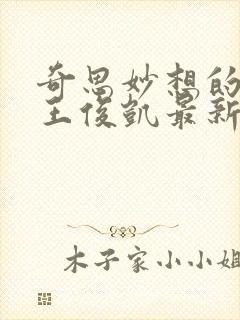 奇思妙想的
王俊凯最新
木子家小小姐